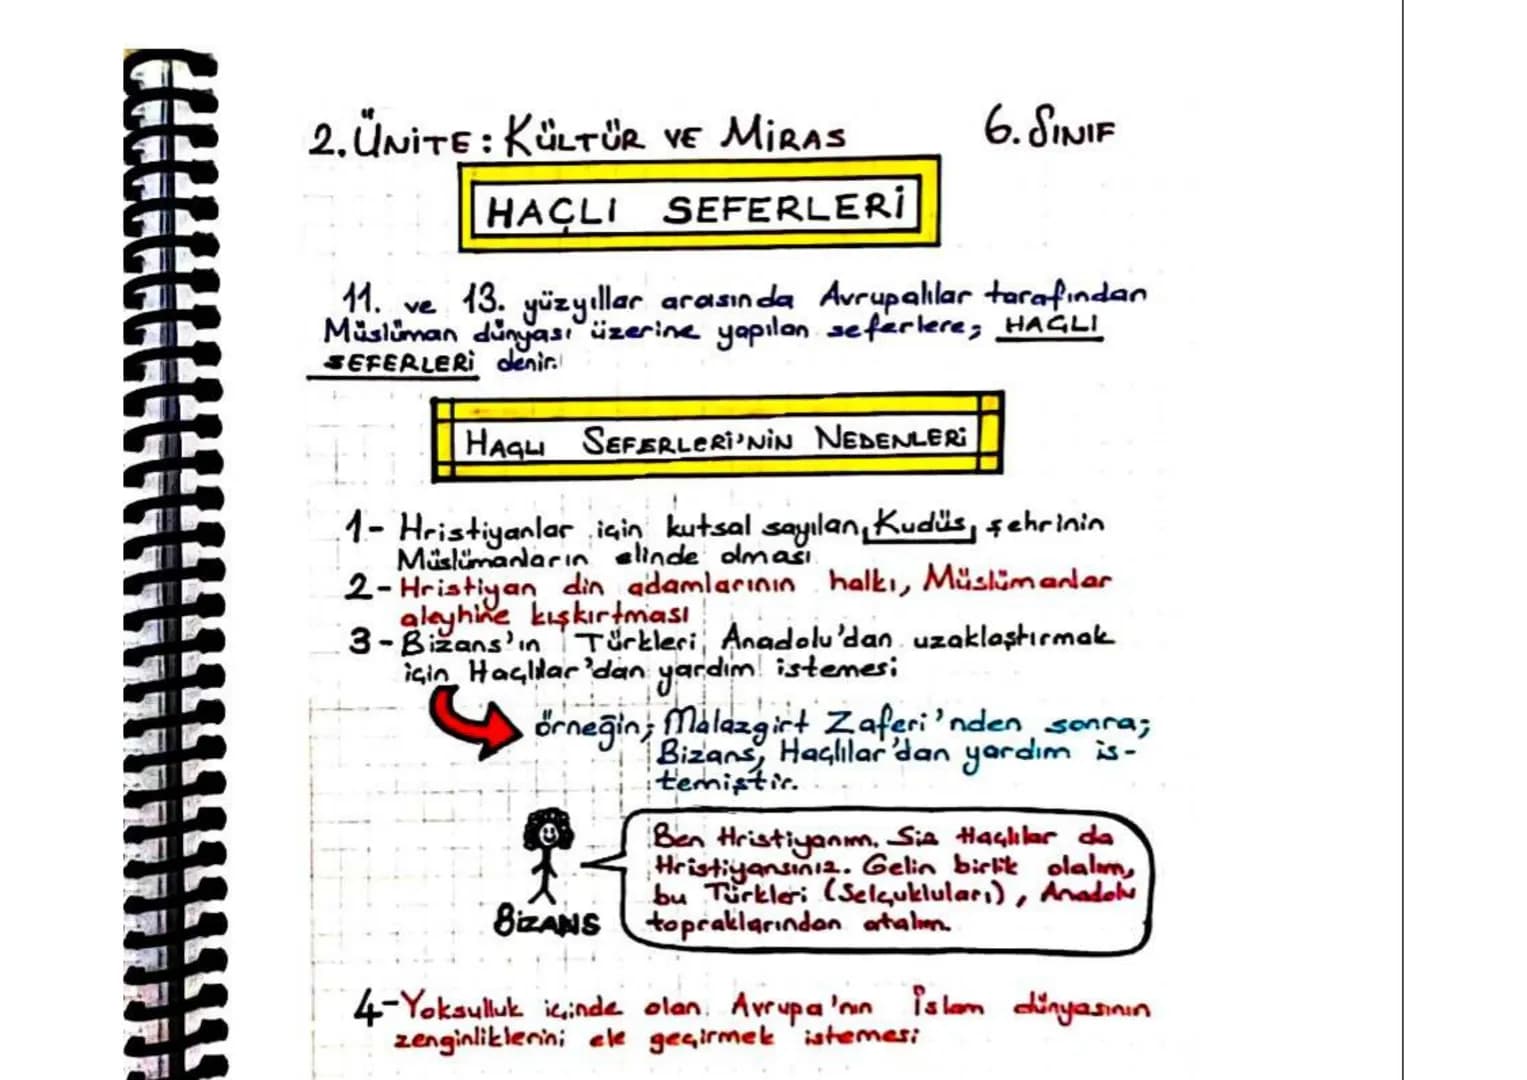 2. ÜNİTE: KÜLTÜR VE MİRAS 6. SINIF
HAÇLI SEFERLERİ
11. ve 13. yüzyıllar arasında Avrupalılar tarafından
Müslüman dünyası üzerine yapılan seferlere; HAÇLI
SEFERLERİ denir.
HAÇLI SEFERLERİ'NİN NEDENLERİ
1- Hristiyanlar için kutsal sayılan, Kudüs, şehrinin
Müslümanların elinde olması
2- Hristiyan din adamlarının halkı, Müslümanlar
aleyhine kışkırtması
3- Bizans'ın Türkleri Anadolu'dan uzaklaştırmak
için Haçlılar'dan yardım istemesi
örneğin; Malazgirt Zaferi'nden sonra;
Bizans, Haçlılar'dan yardım is-
temiştir.
Ben Hristiyanım. Siz Haçlılar da
Hristiyansınız. Gelin birlik olalım,
bu Türkleri (Selçukluları), Anadolu
topraklarından atalım.
BİZANS
4- Yoksulluk içinde olan Avrupa'nın İslam dünyasının
zenginliklerini ele geçirmek istemesi